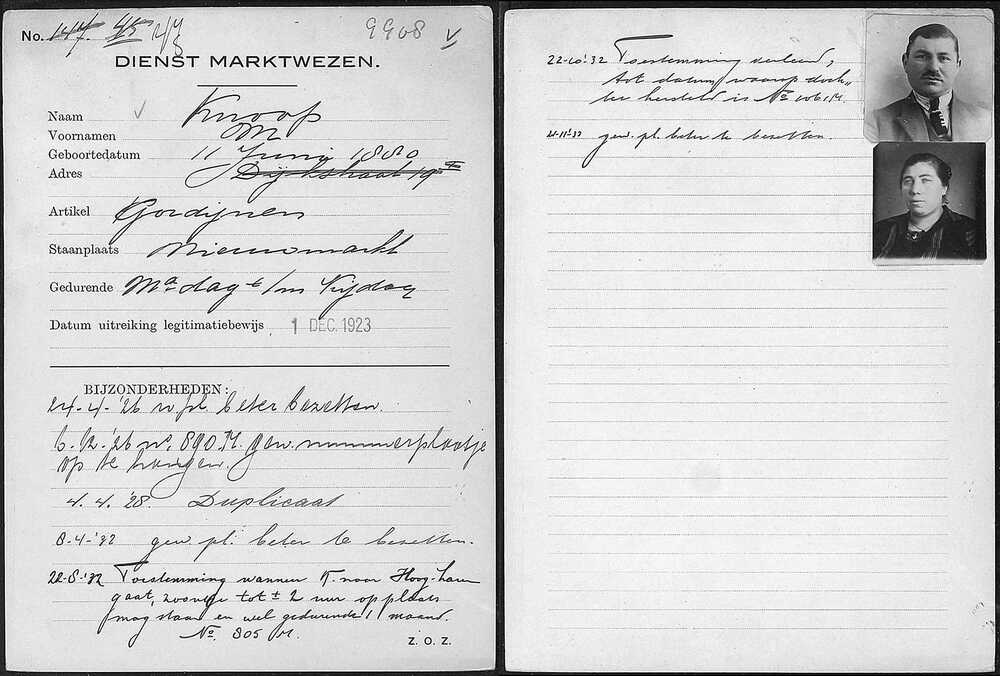 No. 147. 45 14/8
9908 V
DIENST MARKTWEZEN.
Naam Knoop
Voornamen M
Geboortedatum 11 Juni 1880
Adres Dijkstraat 19 I
Artikel Gordijnen
Staanplaats Nieuwmarkt
Gedurende Maandag t/m Vrijdag
Datum uitreiking legitimatiebewijs 1 DEC. 1923
BIJZONDERHEDEN:
24-4-'26 v. pl. beter bezetten.
6-12-'26 no. 890 M. gew. nummerplaatje
op te hangen.
4.4.'28. Duplicaat
8-4-'32 gew. pl. beter te bezetten.
22-8-'32 Toestemming wanneer K. naar
gaat, tot ± 2 uur op plaats
mag staan en wel gedurende 1 maand.
No. 805 M.
Z. O. Z.
22-10-'32 Toestemming verleend,
tot datum waarop doch„
ter hersteld is No. 1061 M.
21-11-'32 gew. pl. beter te bezetten.